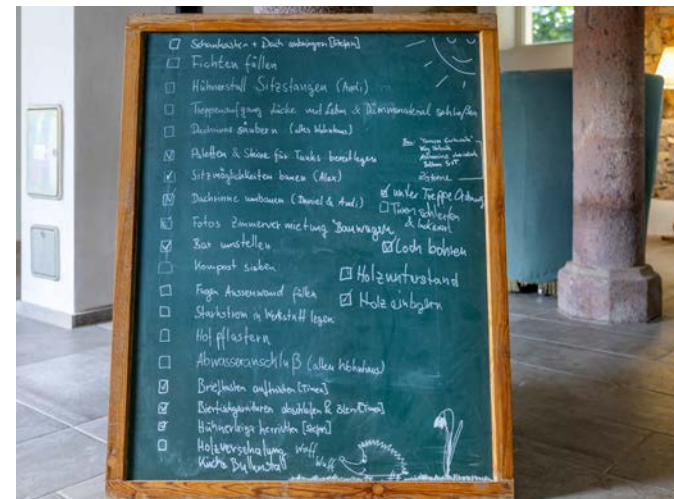 Schaukasten + Dach anbringen [Stefan]
Fichten fällen
Hühnerstall Sitzstangen (Andi)
Treppenaufgang Lücke mit Lehm & Dämmmaterial schließen
Dachrinne säubern (altes Wohnhaus)
Paletten & Steine für Tanks bereitlegen
Sitzmöglichkeiten bauen (Alex)
Dachrinne umbauen (Daniel & Andi)
Fotos Zimmervermietung Bauwagen
Bar umstellen
Kompost sieben
Fugen Aussenwand füllen
Starkstrom in Werkstatt legen
Hof pflastern
Abwasseranschluß (altes Wohnhaus)
Briefkasten [Timea]
Biertischgarnituren abschleifen & ölen [Timea]
Hühnerleiter herrichten [Stefan]
Holzverschalung
Küche
Zisterne
unter Treppe Ordnung
Türen schleifen
&
Loch bohren
Holzunterstand
Holz einlagern
Waff
Waff